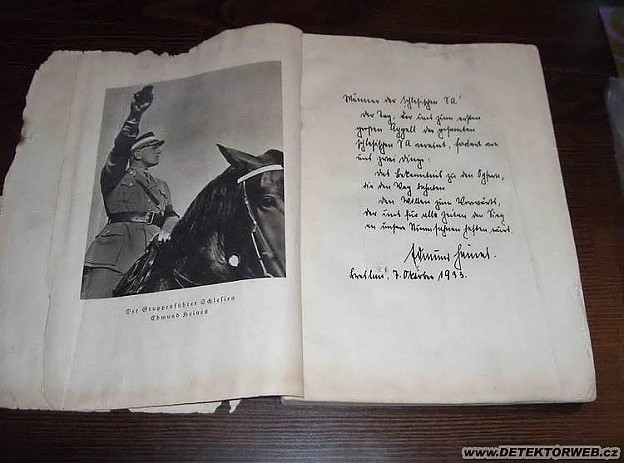 Der Gruppenführer Schlesien
Edmund Heines
Männer der schlesischen SA!
der Tag, der uns zum ersten
großen Appell der gesamten
schlesischen SA vereint, fordert von
uns zwei Dinge:
das Bekenntnis zu den Opfern,
die den Weg bahnten
den Willen zum Vorwärts,
der uns für alle Zeiten den Sieg
an unsere Sturmfahnen heften wird.
Edmund Heines.
Breslau, 7. Oktober 1933.
www.DETEKTORWEB.cz